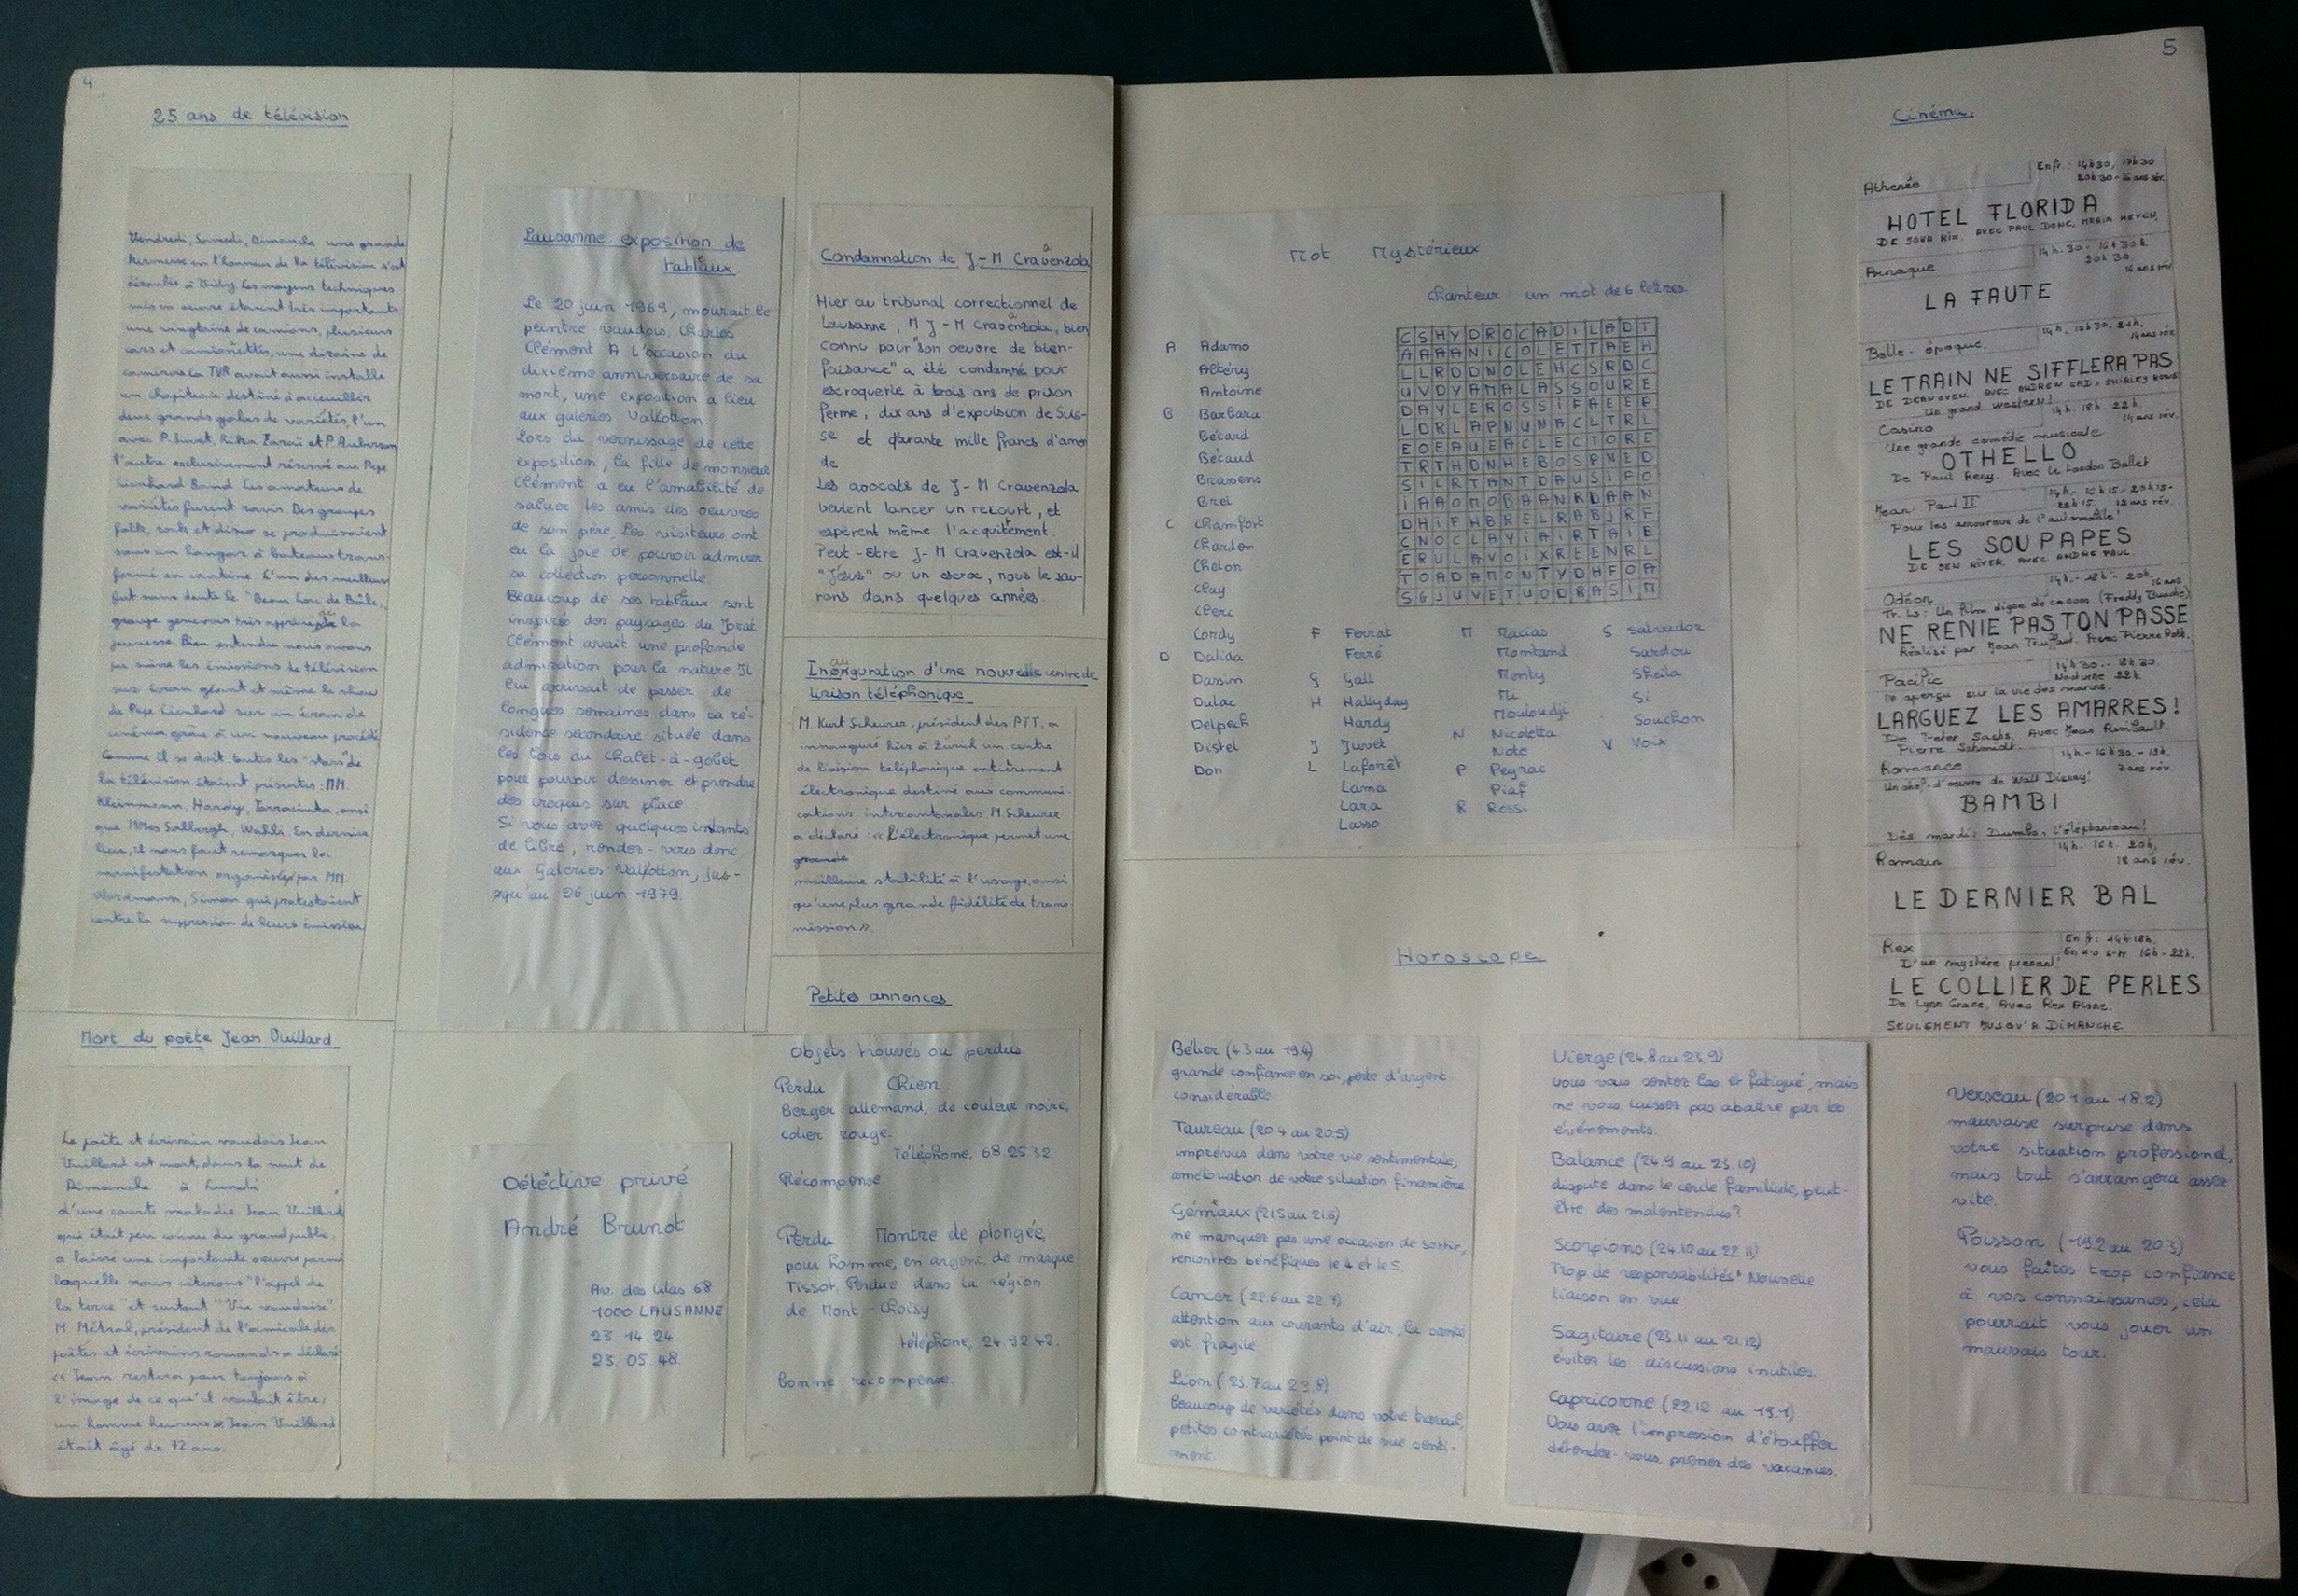 4
25 ans de télévision
Vendredi, Samedi, Dimanche une grande
kermesse en l'honneur de la télévision s'est
déroulée à Vidy. Les moyens techniques
mis en œuvre étaient très importants
une vingtaine de camions, plusieurs
cars et camionettes, une dizaine de
caméras La TVR avait aussi installé
un chapiteau destiné à accueillir
deux grands galas de variétés, l'un
avec P. Rika Zaraï et P. Auberson
l'autre exclusivement réservé au Pepe
Lienhard Band. Les amateurs de
variétés furent ravis. Des groupes
folk, rock et disco se produisaient
sous un hangar à bateaux trans-
formé en cantine. L'un des meilleurs
fut sans doute le "Beau Lac de Bâle,
groupe genevois très apprécié de la
jeunesse. Bien entendu nous avons
pu suivre les émissions de télévision
sur écran géant et même le show
de Pepe Lienhard sur un écran de
cinéma grâce à un nouveau procédé
Comme il se doit toutes les "stars" de
la télévision étaient présentes: MM.
Kleinmann, Hardy, Torracinta, ainsi
que MMes Salbergh, Wahli. En dernier
lieu, il nous faut remarquer la
manifestation organisée par MM.
Simon qui protestaient
contre la supression de leurs émission
Mort du poète Jean Vuillard
Le poète et écrivain vaudois Jean
Vuillard est mort, dans la nuit de
Dimanche à Lundi
d'une courte maladie. Jean Vuillard
qui était peu connu du grand public,
a laissé une importante oeuvre parmi
laquelle nous citerons "l'appel de
la terre" et surtout "Vie vaudoise".
M. Métral, président de l'amicale des
poètes et écrivains romands a déclaré
« Jean restera pour toujours à
l'image de ce qu'il voulait être,
un homme heureux ». Jean Vuillard
était âgé de 72 ans.
Lausanne: exposition de
tableaux.
Le 20 juin 1969, mourait le
peintre vaudois, Charles
Clément A l'occasion du
dixième anniversaire de sa
mort, une exposition a lieu
aux galeries Vallotton.
Lors du vernissage de cette
exposition, la fille de monsieur
Clément a eu l'amabilité de
saluer les amis des oeuvres
de son père. Les visiteurs ont
eu la joie de pouvoir admirer
sa collection personnelle.
Beaucoup de ses tableaux sont
inspirés des paysages du Jorat
Clément avait une profonde
admiration pour la nature. Il
lui arrivait de passer de
longues semaines dans sa ré-
sidence secondaire située dans
les bois du Chalet-à-gobet
pour pouvoir dessiner et prendre
des croquis sur place.
Si vous avez quelques instants
de libre, rendez-vous donc
aux Galeries Vallotton, jus-
qu'au 26 juin 1979.
Détective privé
André Brunot
Av. des Lilas 68
1000 LAUSANNE
23. 14. 24
23. 05. 48
Condamnation de J-M Cravenzola
Hier au tribunal correctionnel de
Lausanne, M J-M Cravenzola, bien
connu pour "son oeuvre de bien-
faisance" a été condamné pour
escroquerie à trois ans de prison
ferme, dix ans d'expulsion de Suis-
se et quarante mille francs d'amen
de
Les avocats de J-M Cravenzola
veulent lancer un recourt, et
espèrent même l'acquitement.
Peut-être J-M Cravenzola est-il
"Jésus" ou un escroc, nous le sau-
rons dans quelques années.
Inauguration d'une nouveau centre de
liaison téléphonique
M. Kurt Scheurer, président des PTT, a
innauguré hier à Zürich un centre
de liaison téléphonique entièrement
électronique destiné aux communi-
cations intercantonales. M. Scheurer
a déclaré: « L'électronique permet une
grande
meilleure stabilité à l'usage, ainsi
qu'une plus grande fidélité de trans
mission ».
Petites annonces
Objets trouvés ou perdus
Perdu Chien.
Berger allemand, de couleur noire,
colier rouge.
Téléphone, 68.25.32
Récompense.
Perdu Montre de plongée,
pour homme, en argent, de marque
Tissot Perdue dans la région
de Mont-Choisy
téléphone, 24.92.42.
bonne récompense.
5
Mot Mystérieux
Chanteur un mot de 6 lettres.
CSHYDROCADILADT
AAAANICOLETTAEH
LLRDDNOLEHCSRDC
UVDYAMALASSOURE
DAYLEROSSIFAEEP
LDRLAPNUNACLTRL
EOEAUEACLECTORE
TRTHDNHEBOSPNED
SILRTANTDAUSIFO
IAAOMOBAANRDAAN
DHIFHBRELRABJRF
CNOCLAYIAIRTAIE
ERULAVOIXREENRL
TOADAMONTYDHFOA
SGJUVETUODRASIM
A Adamo
Altéry
Antoine
B Barbara
Bécard
Bécaud
Brassens
Brel
C Chamfort
Chardon
Chelon
Clay
Clerc
Cordy
D Dalida
Dassin
Dulac
Delpech
Distel
Don
F Ferrat
Ferré
G Gall
H Hallyday
Hardy
J Juvet
L Laforêt
Lama
Lara
Lasso
M Macias
Montand
Monty
Mi
Mouloudji
N Nicoletta
Note
P Peyrac
Piaf
R Rossi
S Salvador
Sardou
Sheila
Si
Souchon
V Voix
Horoscope
Bélier (4.3 au 19.4)
grande confiance en soi, perte d'argent
considérable
Taureau (20.4 au 20.5)
imprévus dans votre vie sentimentale,
amélioration de votre situation financière
Gémaux (21.5 au 21.6)
ne manquez pas une occasion de sortir,
rencontres bénéfiques le 4 et le 5.
Cancer (22.6 au 22.7)
attention aux courants d'air, la santé
est fragile
Lion (23.7 au 23.8)
beaucoup de variétés dans votre travail,
petites contrariétés point de vue senti-
ment.
Vierge (24.8 au 23.9)
vous vous sentez las et fatigué, mais
ne vous laissez pas abatre par les
événements.
Balance (24.9 au 23.10)
dispute dans le cercle familiale, peut-
être des malentendus?
Scorpions (24.10 au 22.11)
Trop de responsabilités! Nouvelle
liaison en vue
Sagitaire (23.11 au 21.12)
évitez les discussions inutiles.
Capricorne (22.12 au 19.1)
Vous avez l'impression d'étouffer,
détendez-vous, prenez des vacances.
Verseau (20.1 au 18.2)
mauvaise surprise dans
votre situation professionel,
mais tout s'arrangera assez
vite.
Poisson (19.2 au 20.3)
vous faites trop confiance
à vos connaissances, cela
pourrait vous jouer un
mauvais tour.
Cinéma
Athenée
Enfr.: 14h30, 17h30
20h30 - 16 ans rév.
HOTEL FLORIDA
DE JOHN RIX. AVEC PAUL DONE, MARIA HEVEN.
Arnaque
14h.30 - 16h30h.
20h30
16 ans rév
LA FAUTE
Belle-époque.
14h, 17h30, 21h.
14 ans rév
LE TRAIN NE SIFFLERA PAS
Un grand western!
Casino
14h. 18h. 22h.
14 ans rév.
Une grande comédie musicale
OTHELLO
De Paul Reny. Avec Le London Ballet
Jean-Paul II
14h.- 16h15 - 20h15-
22h15. 12 ans rév.
Pour les amoureux de l'automobile!
LES SOUPAPES
DE BEN RIVER AVEC ANDRE PAUL.
Odéon
14h.- 18h - 20h.
16 ans
Tr. Lo: Un film digne de ce nom (Freddy Buache)
NE RENIE PAS TON PASSE
Pacific
14h30 - 18h30.
Nocturne 22h.
Un aperçu sur la vie des marins.
LARGUEZ LES AMARRES!
De Peter Sachs, Avec Jean Rimbault.
Pierre Schmidt.
Romance
14h.- 16h30.- 19h.
7 ans rév.
Un chef-d'oeuvre de Walt Disney!
BAMBI
Dès mardi: Dumbo, l'éléphanteau!
Romain
14h. 16h. 20h.
18 ans rév.
LE DERNIER BAL
Rex
En fr: 14h-18h.
En v-o s-tr 16h-22h.
D'un mystère pesant!
LE COLLIER DE PERLES
De Lynn Grace. Avec Rex Alone.
SEULEMENT JUSQU'A DIMANCHE